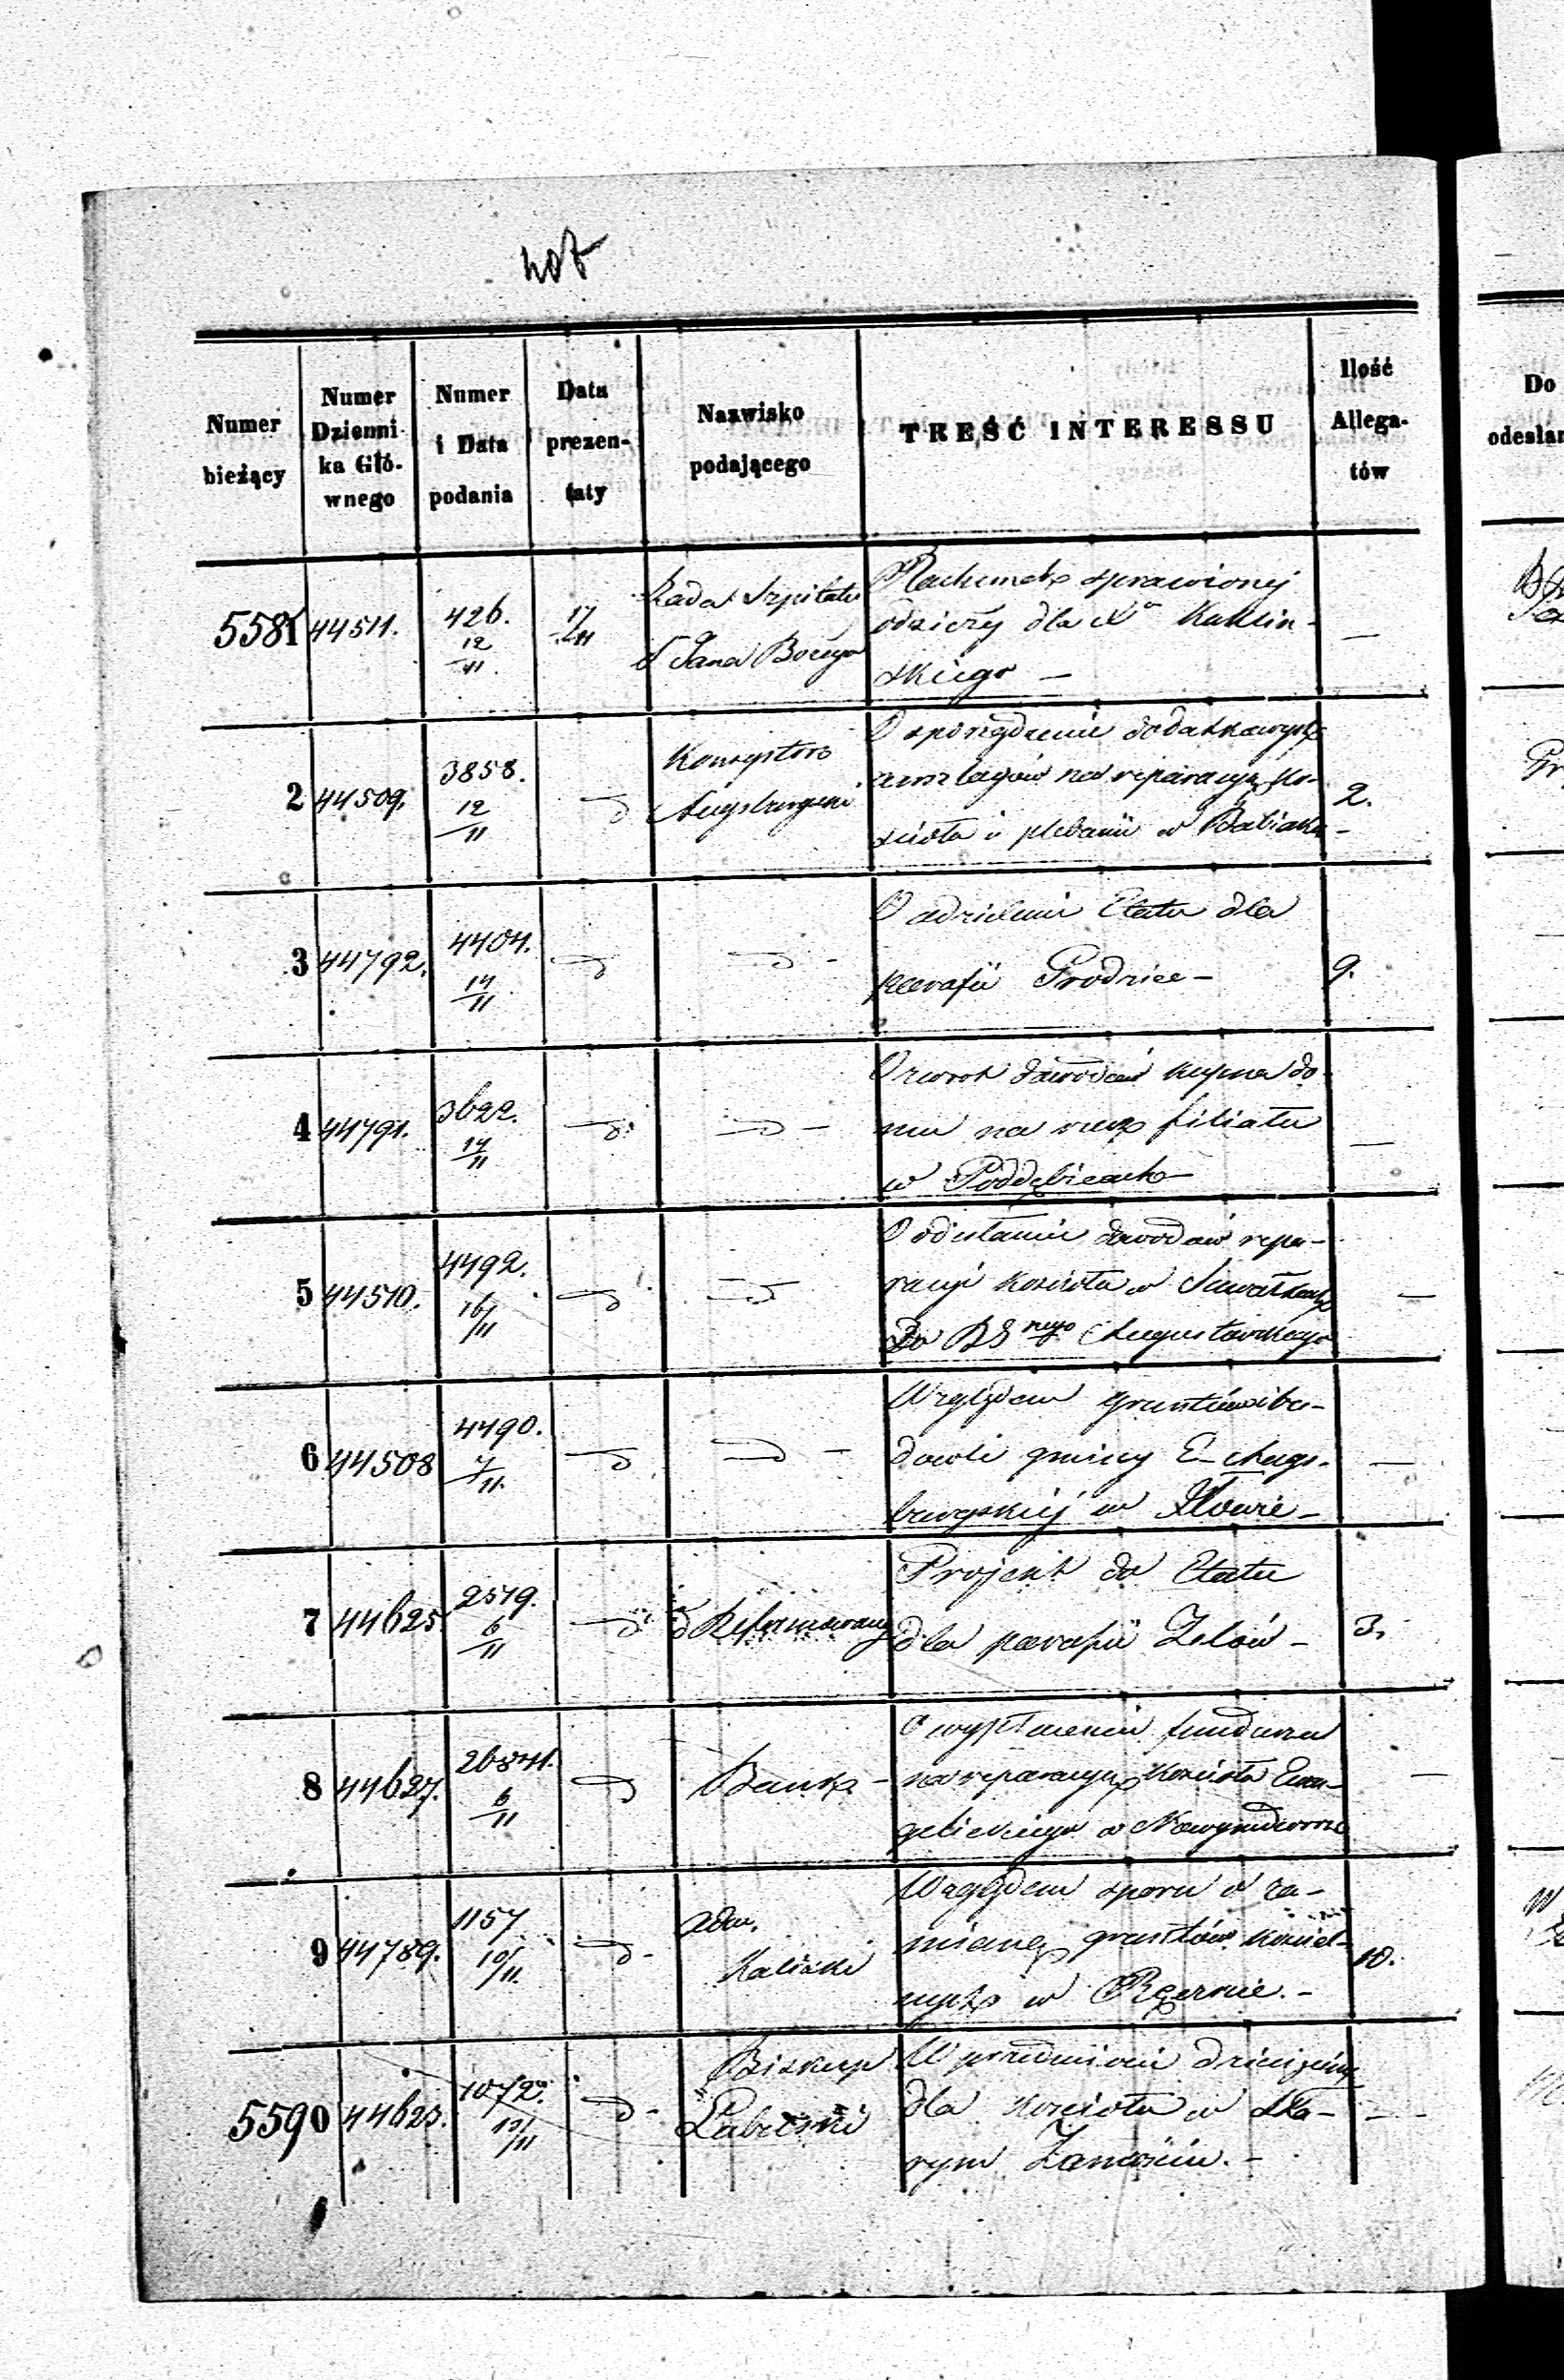 407
Numer bieżący
Numer Dzienni- ka Głó- wnego
Numer i Data podania
Data prezen- taty
Nazwisko podającego
TREŚĆ INTERESSU
Ilość Allega- tów
Do
odesłan
5581 44511. 426. 12/11 17/11
Rada Szpitala
S Jana Bożego
Rachunek sprawionej
odzieży dla Xa Kuklin-
skiego —
2 44509. 3858. 12/11 d
Konsystorz
Augsburgski
O sporządzenie dodatkowych
anszlagów na reparacyę ko-
ścioła i plebanii w Babiaku —
2.
3 44792. 4404. 14/11 d d -
O udzielenie Etatu dla
parafii Prodnice —
9.
4 44791. 3622. 14/11 d d -
O zwrot dowodów kupna do-
mu na rzecz filiału
w Poddębicach —
—
5 44510. 4492. 16/11 d d
O odesłanie dowodów repa-
racyi kościoła w Suwałkach
Do RG nego Augustowskiego
—
6 44508 4490. 7/11. d d -
Względem gruntów i bu-
dowli gminy E- Augs-
burgskiej w Iłowie —
—
7 44625 2519. 6/11 d
d Reformowany
Projekt do Etatu
dla parafii Zelów —
3.
8 44627. 26841. 6/11 d
Bank -
O wypłacenie funduszu
na reparacyę Kościoła Ewan-
gelickiego w Nowymdworze
—
9 44789. 1157 10/11. d -
Adm.
Kaliski
Względem sporu o za-
mianę gruntów kościel-
nych w Rzęrnie. —
10.
5590 44623. 1072. 13/11 d -
Biskup
Łubieński
W przedmiocie dziesięciny
dla kościoła w Sta-
rym Zamościu. —
—